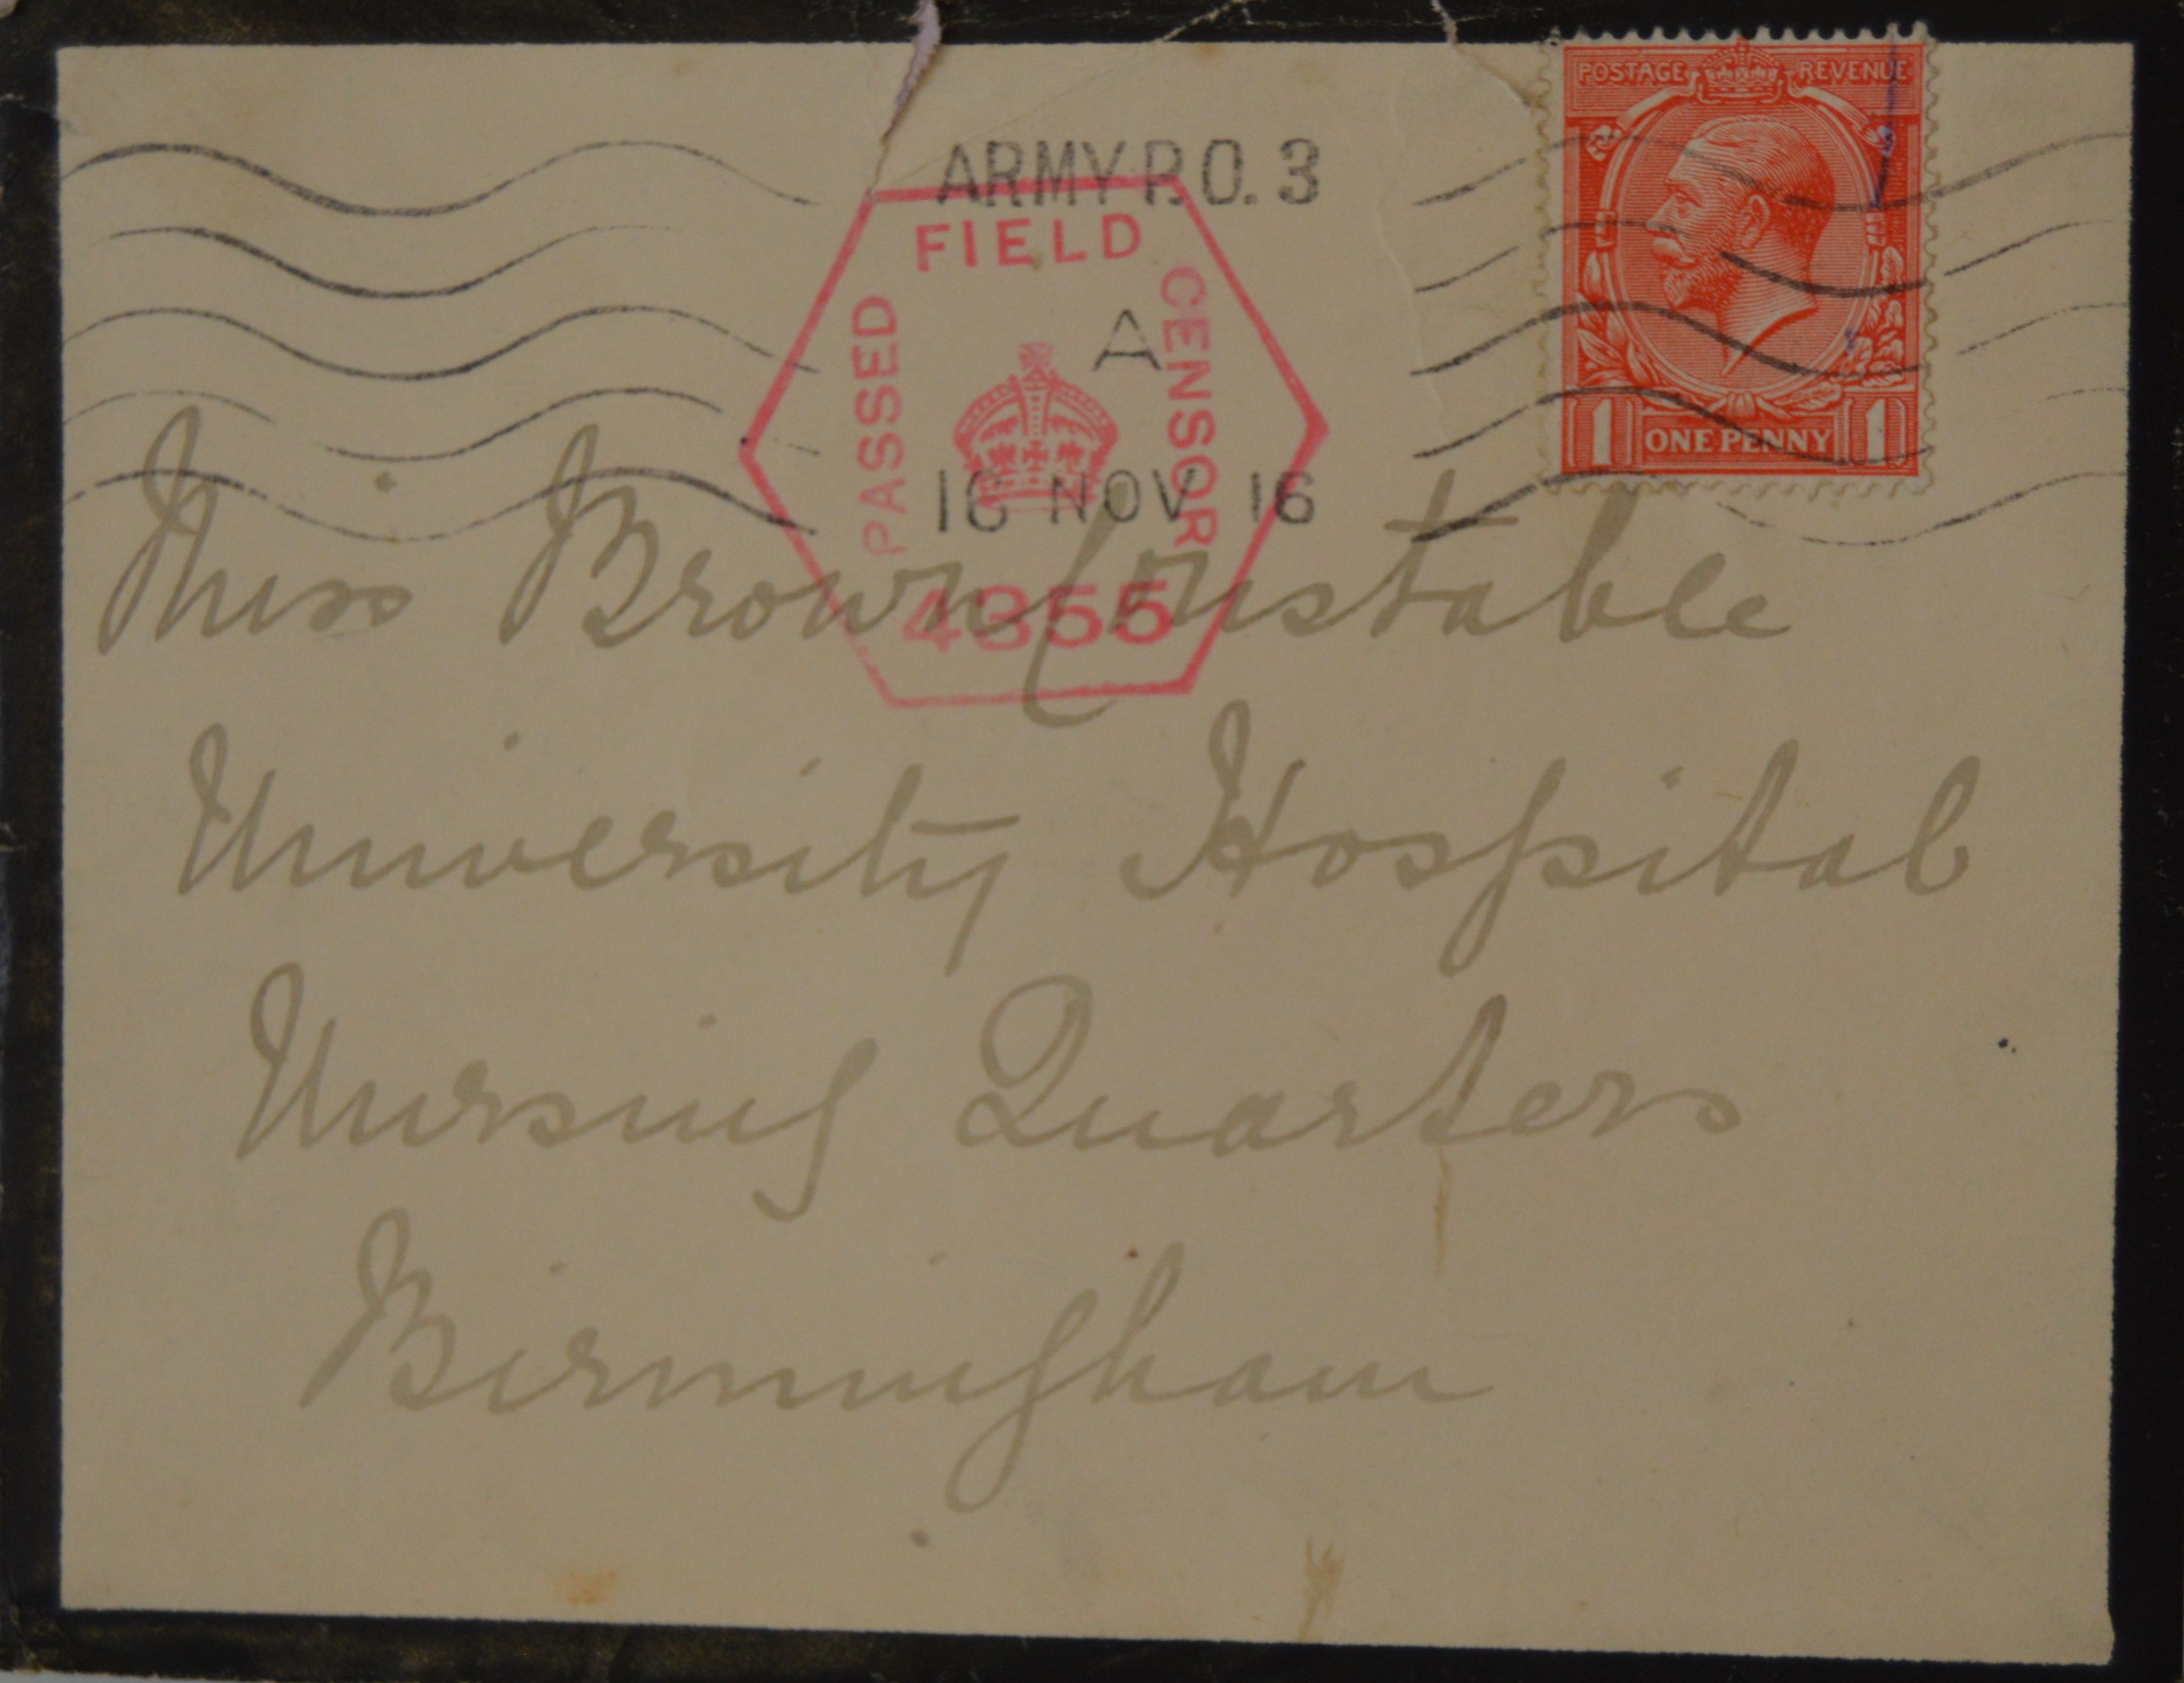 POSTAGE REVENUE
ARMY P.O. 3
FIELD
PASSED
CENSOR
A
16 NOV 16
1 ONE PENNY 1
4355
Miss Brown Constable
University Hospital
Nursing Quarters
Birmingham